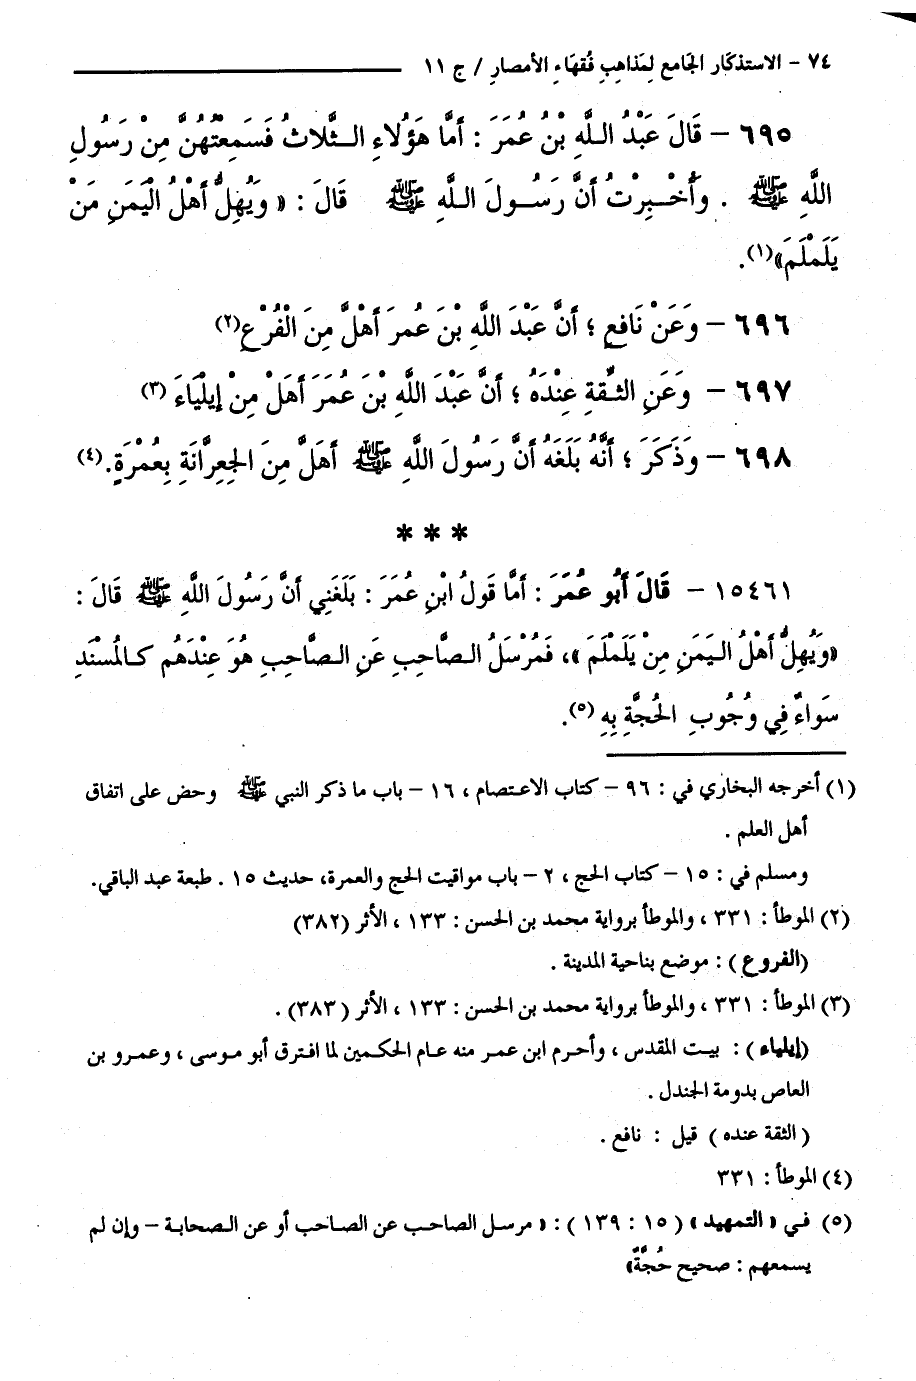 ٧٤ - الاستذكار الجامع لِمَذاهِبِ فُقهَاءِ الأمصارِ / ج ١١
٦٩٥ - قَالَ عَبْدُ اللَّهِ بْنُ عُمَرَ : أَمَّا هَؤُلاءِ الثَّلاثُ فَسَمِعْتُهُنَّ مِنْ رَسُولِ
اللَّهِ ﷺ . وَأُخْبِرْتُ أَنَّ رَسُولَ اللَّهِ ﷺ قَالَ : « وَيُهِلُّ أَهْلُ الْيَمَنِ مَنْ
يَلَمْلَمَ»(١).
٦٩٦ - وَعَنْ نَافِعٍ ؛ أَنَّ عَبْدَ اللَّهِ بْنَ عُمرَ أَهْلَّ مِنَ الْفُرْعِ(٢)
٦٩٧ - وَعَنِ الثِّقةِ عِنْدَهُ ؛ أَنَّ عَبْدَ اللَّهِ بْنَ عُمَرَ أَهَلْ مِنْ إِيلْيَاءَ (٣)
٦٩٨ - وَذَكَرَ ؛ أَنَّهُ بَلَغَهُ أَنَّ رَسُولَ اللَّهِ ﷺ أَهَلَّ مِنَ الجِعِرَّانَةِ بِعُمْرَةٍ.(٤)
***
١٥٤٦١ - قَالَ أَبُو عُمَرَ : أَمَّا قَولُ ابْنِ عُمَرَ : بَلَغَنِي أَنَّ رَسُولَ اللَّهِ ﷺ قَالَ :
«وَيُهِلُّ أَهْلُ اليَمَنِ مِنْ يَلَمْلَمَ »، فَمُرْسَلُ الصَّاحِبِ عَنِ الصَّاحِبِ هُوَ عِنْدَهُم كالمُسْنَدِ
سَوَاءً فِي وُجُوبِ الحُجَّةِ بِهِ (٥).
(١) أخرجه البخاري في : ٩٦ - كتاب الاعتصام ، ١٦ - باب ما ذكر النبي ﷺ وحض على اتفاق
أهل العلم .
ومسلم في : ١٥ - كتاب الحج ، ٢ - باب مواقيت الحج والعمرة، حديث ١٥ . طبعة عبد الباقي.
(٢) الموطأ : ٣٣١ ، والموطأ برواية محمد بن الحسن : ١٣٣ ، الأثر (٣٨٢)
(الفروع ) : موضع بناحية المدينة .
(٣) الموطأ : ٣٣١ ، والموطأ برواية محمد بن الحسن : ١٣٣ ، الأثر ( ٣٨٣) .
(إيلياء ) : بيت المقدس ، وأحرم ابن عمر منه عام الحكمين لما افترق أبو موسى ، وعمرو بن
العاص بدومة الجندل .
( الثقة عنده ) قيل : نافع .
(٤) الموطأ : ٣٣١
(٥) في « التمهيد » ( ١٥ : ١٣٩ ) : « مرسل الصاحب عن الصاحب أو عن الصحابة - وإن لم
يسمعهم : صحيح حُجَّةٌ»